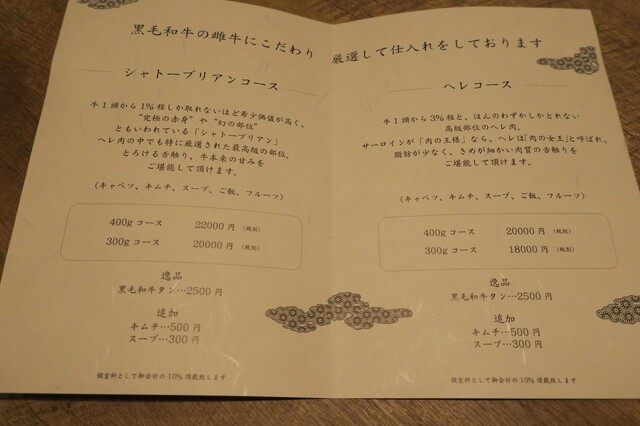 黒毛和牛の雌牛にこだわり
シャトーブリアンコース
牛1頭から1%程しか取れないほど希少価値が高く、
"究極の赤身"や"幻の部位"
ともいわれている「シャトーブリアン」
ヘレ肉の中でも特に厳選された最高級の部位、
とろける舌触り、牛本来の甘みを
ご堪能して頂けます。
(キャベツ、キムチ、スープ、ご飯、フルーツ)
400g コース 22000 円 (税別)
300g コース 20000 円 (税別)
逸品
黒毛和牛タン…2500 円
追加
キムチ…500 円
スープ…300 円
個室料として御会計の10% 頂戴致します
厳選して仕入れをしております
ヘレコース
牛1頭から3%程と、ほんのわずかしかとれない
高級部位のヘレ肉。
サーロインが「肉の王様」なら、ヘレは「肉の女王」と呼ばれ、
脂肪が少なく、きめが細かい肉質の舌触りを
ご堪能して頂けます。
(キャベツ、キムチ、スープ、ご飯、フルーツ)
400g コース 20000 円 (税別)
300g コース 18000 円 (税別)
逸品
黒毛和牛タン…2500 円
追加
キムチ…500 円
スープ…300 円
個室料として御会計の10% 頂戴致します